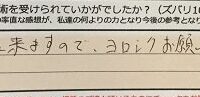 術を受けられていかがでしたか？（ズバリ10
率直な感想が、私達の何よりの力となり今後の参考となり
来ますので、ヨロシクお願